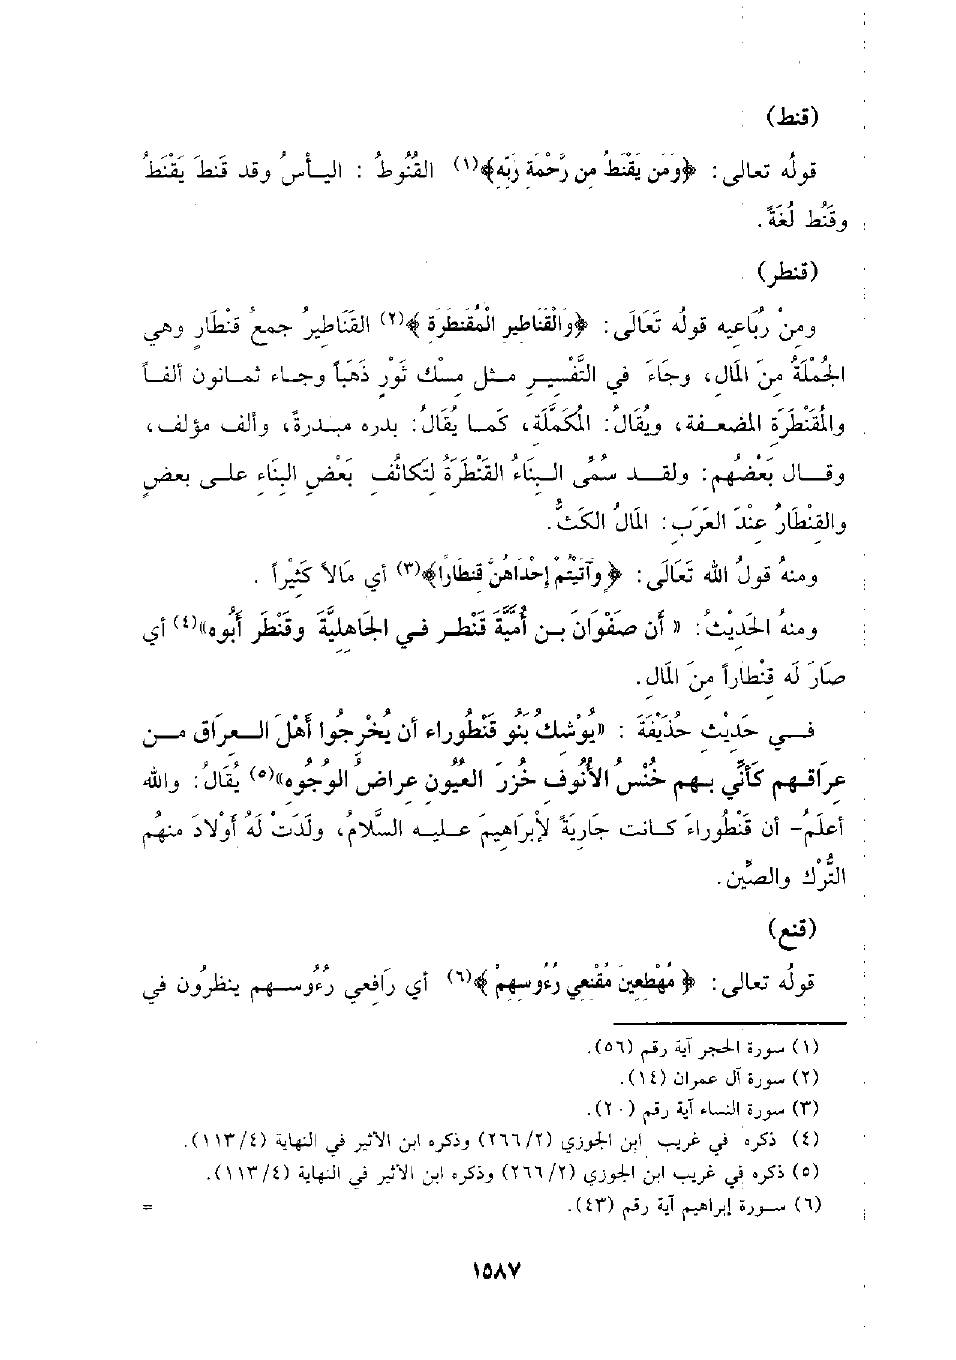 (قنط)
قولُه تعالى: ﴿وَمَن يَقْنَطُ مِن رَّحْمَةِ رَبِّهِ﴾(١) القُنُوطُ : اليـأسُ وقد قَنطَ يَقْنَطُ
وقَنُط لُغَةً.
(قنطر)
ومِنْ رُبَاعِيه قولُه تَعَالَى: ﴿وَالْقَنَاطِيرِ الْمُقَنطَرَةِ﴾(٢) القَنَاطِيرُ جمعُ قنْطَارٍ وهي
الجُمْلَةُ مِنَ المَال، وجَاءَ في التَّفْسِيرِ مثل مسْك ثَوْرٍ ذَهَبَاً وجاء ثمانون ألفاً
والمُقَنْطَرَة المضعفة، ويُقَالُ: المُكَمَّلَة، كَما يُقَالُ: بدره مبدرةً، وألف مؤلف،
وقال بَعْضُهم: ولقد سُمِّى البِنَاءُ القَنْطَرَةُ لِتَكَاثُفِ بَعْضِ البِنَاءِ على بعضٍ
والقِنْطَارُ عِنْدَ العَرَبِ: المَالُ الكَثُّ.
ومنهُ قولُ الله تَعَالَى: ﴿وَآتَيْتُمْ إِحْدَاهُنَّ قِنطَارًا﴾(٣) أي مَالاً كَثِيْراً .
ومنهُ الحَدِيْثُ: « أَن صَفْوَانَ بن أُمَيَّةَ قَنْطر في الجَاهِلِيَّةِ وقَنْطَر أَبُوه»(٤) أي
صَارَ لَه قِنْطَاراً مِنَ المَالِ.
في حَدِيْثِ حُذَيْفَةَ : «يُوْشكُ بَنُو قَنْطُوراء أن يُخْرِجُوا أَهْلَ العِرَاق من
عِرَاقهم كَأَنِّي بهم خُنْسُ الأُنُوف خُزرَ العُيُون عراضُ الوُجُوه»(٥) يُقَالُ: والله
أعلَمُ- أن قَنْطُوراءَ كانت جَارِيَةً لإبراهِيمَ عليه السَّلامُ، ولَدَتْ لَهُ أَوْلادَ منهُم
التُّرْك والصِّين.
(قنع)
قولُه تعالى: ﴿ مُهْطِعِينَ مُقْنِعِي رُءُوسِهِمْ ﴾(٦) أي رَافِعي رُءُوسهم ينظرُون في
(١) سورة الحجر آية رقم (٥٦).
(٢) سورة آل عمران (١٤).
(٣) سورة النساء آية رقم (٢٠).
(٤) ذكره في غريب ابن الجوزي (٢/ ٢٦٦) وذكره ابن الأثير في النهاية (٤/ ١١٣).
(٥) ذكره في غريب ابن الجوزي (٢/ ٢٦٦) وذكره ابن الأثير في النهاية (٤/ ١١٣).
(٦) سورة إبراهيم آية رقم (٤٣). =
١٥٨٧